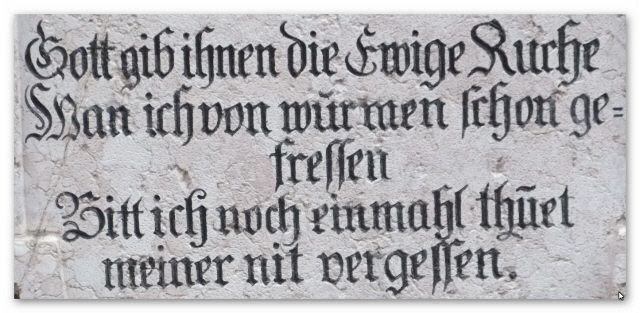 Gott gib ihnen die Ewige Ruche
Wan ich von würmen schon ge=
fressen
Bitt ich noch einmahl thüet
meiner nit vergessen.